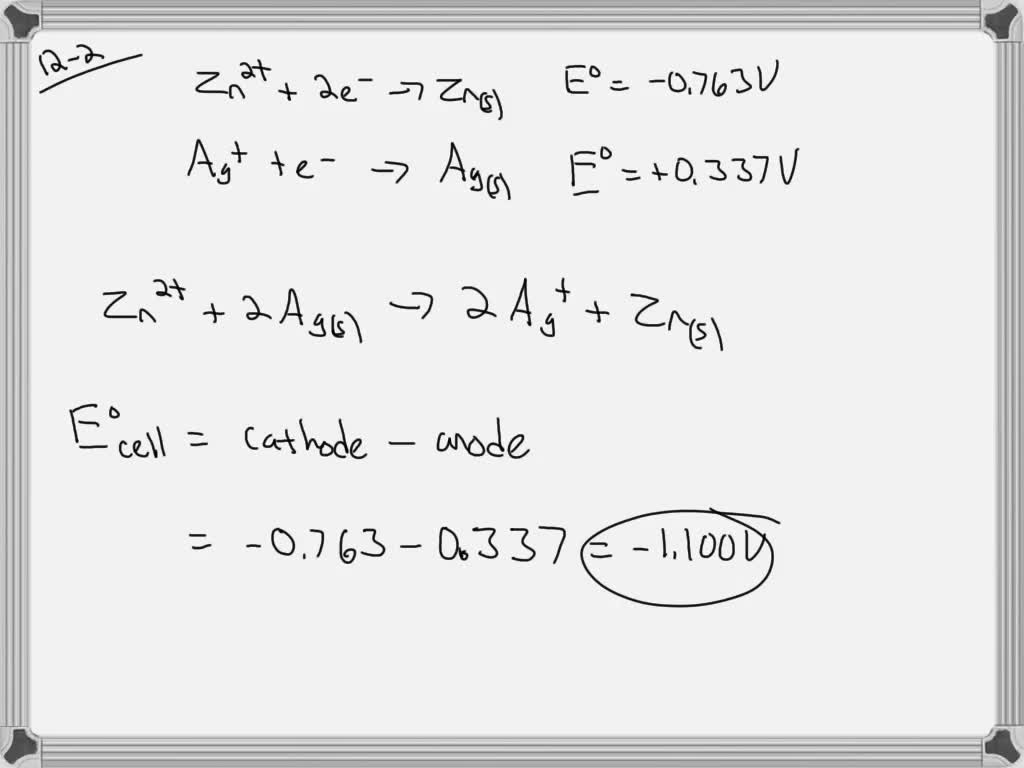 12-2
Zn²⁺ + 2e⁻ → Zn(s) E° = -0.763V
Ag⁺ + e⁻ → Ag(s) E° = +0.337V
Zn²⁺ + 2Ag(s) → 2Ag⁺ + Zn(s)
E°cell = cathode - anode
= -0.763 - 0.337 = -1.100V